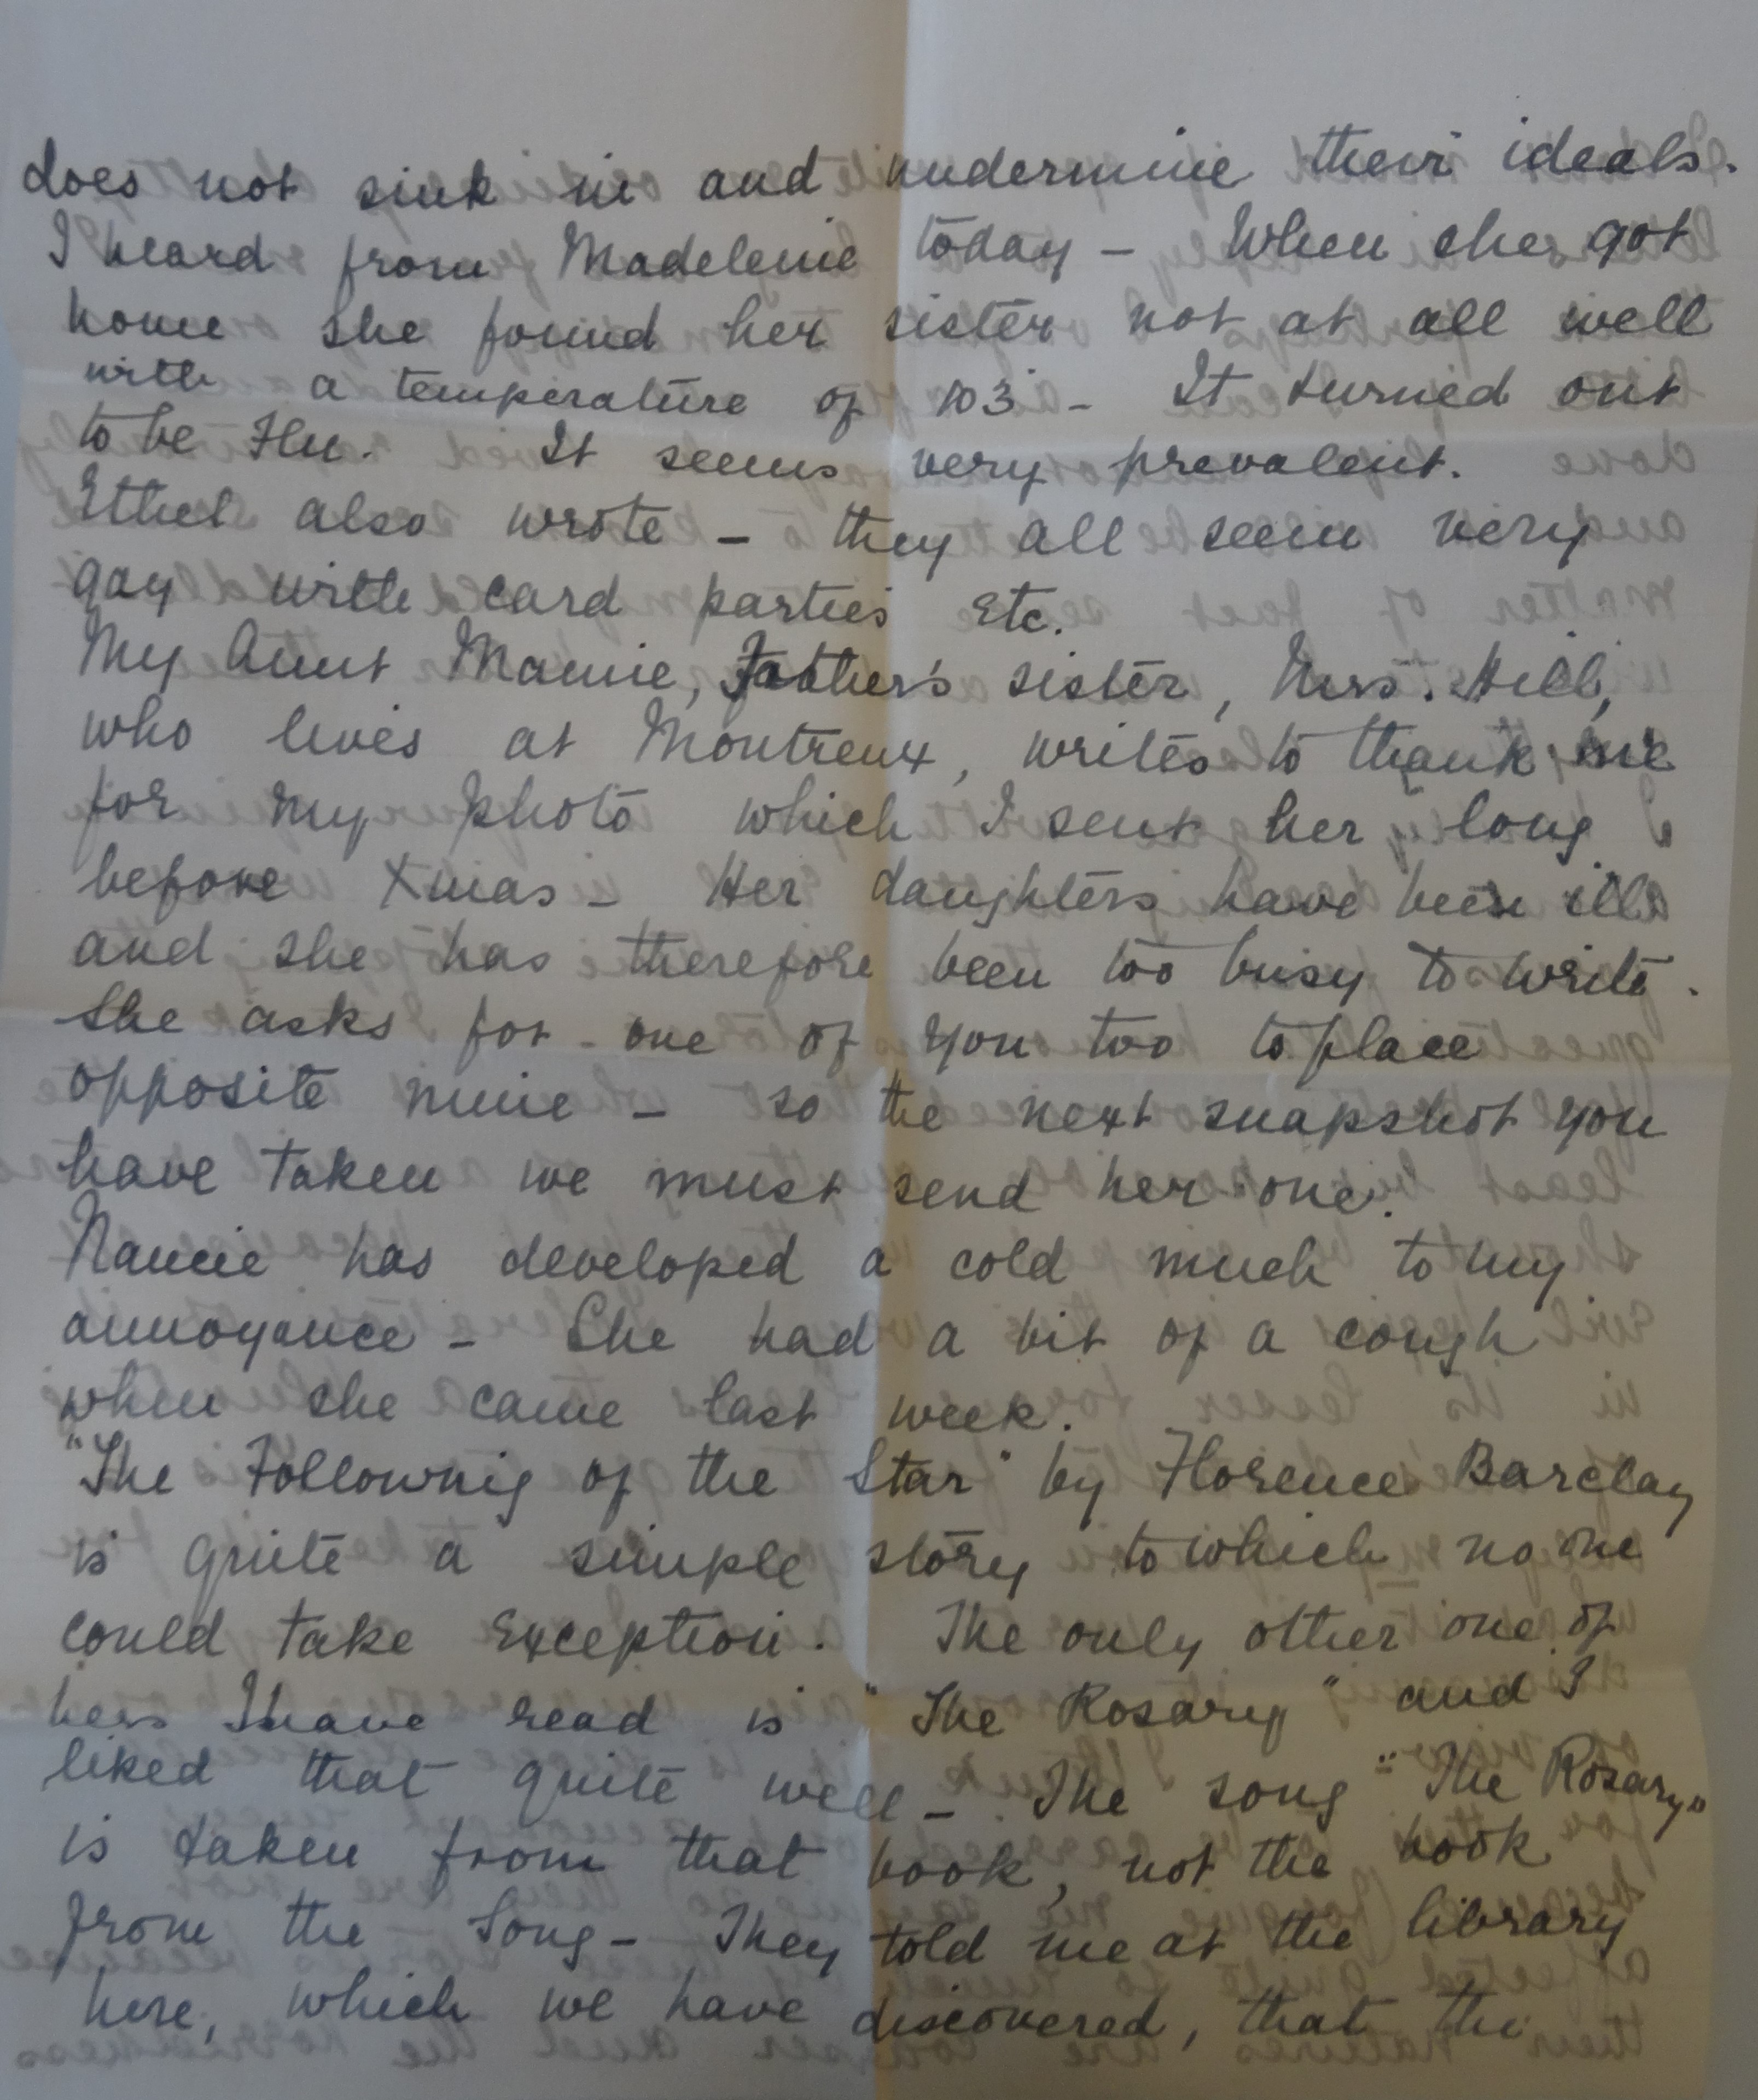 does not sink in and undermine their ideals.
I heard from Madeleine today – When she got
home she found her sister not at all well
with a temperature of 103 – It turned out
to be Flu. It seems very prevalent.
Ethel also wrote – they all seem very
gay with card parties etc.
My Aunt Mamie, Father's sister, Mrs. Hill,
who lives at Montreux, writes to thank me
for my photo which I sent her long
before Xmas – Her daughters have been ill
and she has therefore been too busy to write.
She asks for one of you too to place
opposite mine – so the next snapshot you
have taken we must send her one.
Nancie has developed a cold much to my
annoyance – She had a bit of a cough
when she came last week.
"The Following of the Star" by Florence Barclay
is quite a simple story to which no one
could take exception. The only other one of
hers I have read is "The Rosary" and I
liked that quite well – The song "The Rosary"
is taken from that book, not the book
from the Song – They told me at the library
here, which we have discovered, that the